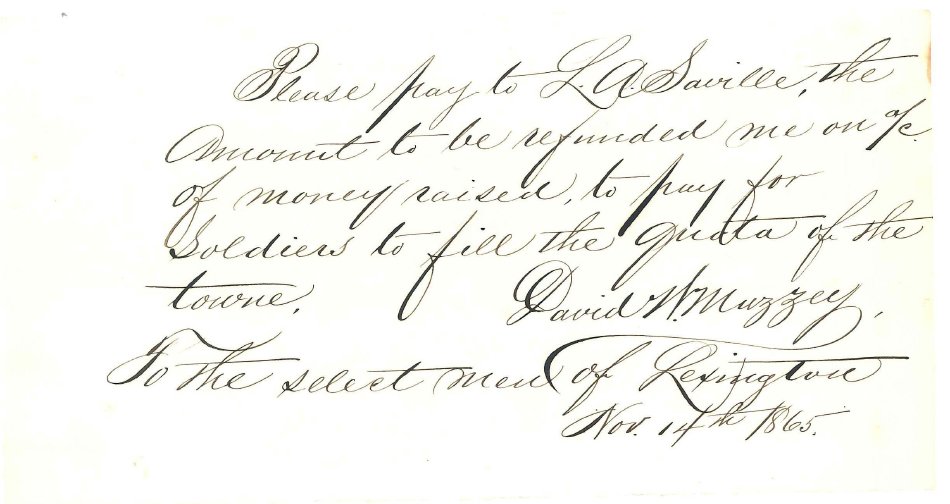 Please pay to L. A. Saville, the
Amount to be refunded me on a/c.
of money raised, to pay for
Soldiers to fill the quota of the
towne.
David W. Muzzey,
To the select men of Lexington
Nov. 14th 1865.